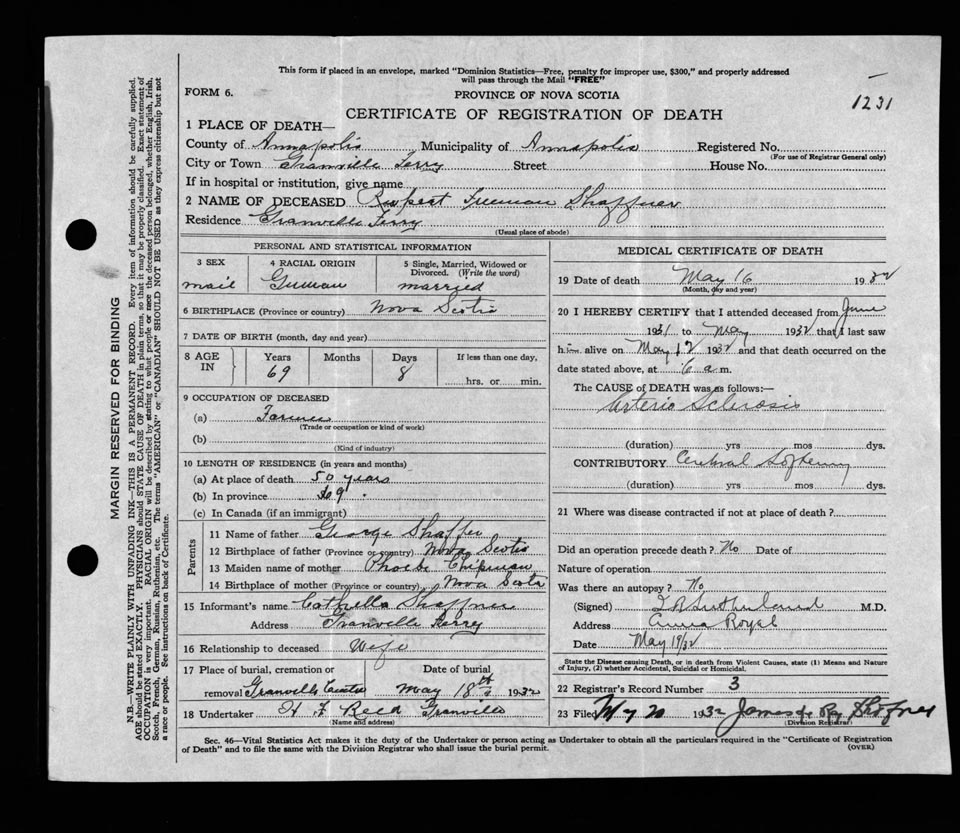 This form if placed in an envelope, marked "Dominion Statistics—Free, penalty for improper use, $300," and properly addressed
will pass through the Mail "FREE"
FORM 6.
PROVINCE OF NOVA SCOTIA
1231
CERTIFICATE OF REGISTRATION OF DEATH
1 PLACE OF DEATH—
County of Annapolis Municipality of Annapolis Registered No.
(For use of Registrar General only)
City or Town Granville Ferry Street House No.
If in hospital or institution, give name
2 NAME OF DECEASED Rupert Freeman Shaffner
Residence Granville Ferry
(Usual place of abode)
PERSONAL AND STATISTICAL INFORMATION
3 SEX 4 RACIAL ORIGIN 5 Single, Married, Widowed or
Divorced. (Write the word)
mail German married
6 BIRTHPLACE (Province or country) Nova Scotia
7 DATE OF BIRTH (month, day and year)
8 AGE IN Years Months Days If less than one day,
69 8 hrs. or min.
9 OCCUPATION OF DECEASED
(a) Farmer
(Trade or occupation or kind of work)
(b)
(Kind of industry)
10 LENGTH OF RESIDENCE (in years and months)
(a) At place of death 50 years
(b) In province 69
(c) In Canada (if an immigrant)
Parents
11 Name of father George Shaffner
12 Birthplace of father (Province or country) Nova Scotia
13 Maiden name of mother Phoebe Chipman
14 Birthplace of mother (Province or country) Nova Scotia
15 Informant's name Shaffner
Address Granville Ferry
16 Relationship to deceased Wife
17 Place of burial, cremation or Date of burial
removal Granville Centre May 18th 1932
18 Undertaker H F Reed Granville
(Name and address)
MEDICAL CERTIFICATE OF DEATH
19 Date of death May 16 1932
(Month, day and year)
20 I HEREBY CERTIFY that I attended deceased from June
1931 to May 1932 that I last saw
him alive on May 12 1932 and that death occurred on the
date stated above, at 6 a m.
The CAUSE of DEATH was as follows:—
Arterio Sclerosis
(duration) yrs mos dys.
CONTRIBUTORY Cerebral Softening
(duration) yrs mos dys.
21 Where was disease contracted if not at place of death?
Did an operation precede death? No Date of
Nature of operation
Was there an autopsy? No
(Signed) Sutherland M.D.
Address Anna Royal
Date May 19/32
State the Disease causing Death, or in death from Violent Causes, state (1) Means and Nature
of Injury, (2) whether Accidental, Suicidal or Homicidal.
22 Registrar's Record Number 3
23 Filed May 20 1932 James Roy Shaffner
(Division Registrar)
Sec. 46—Vital Statistics Act makes it the duty of the Undertaker or person acting as Undertaker to obtain all the particulars required in the "Certificate of Registration
of Death" and to file the same with the Division Registrar who shall issue the burial permit.
(OVER)
MARGIN RESERVED FOR BINDING
N.B.—WRITE PLAINLY WITH UNFADING INK—THIS IS A PERMANENT RECORD. Every item of information should be carefully supplied.
AGE should be stated EXACTLY. PHYSICIANS should STATE CAUSE OF DEATH in plain terms, so that it may be properly classified. Exact statement of
OCCUPATION is very important. RACIAL ORIGIN will be described by stating to what people or race the deceased person belonged, whether English, Irish,
Scotch, French, German, Russian, Ruthenian, etc. The terms "AMERICAN" or "CANADIAN" SHOULD NOT BE USED as they express citizenship but not
a race or people. See instructions on back of Certificate.